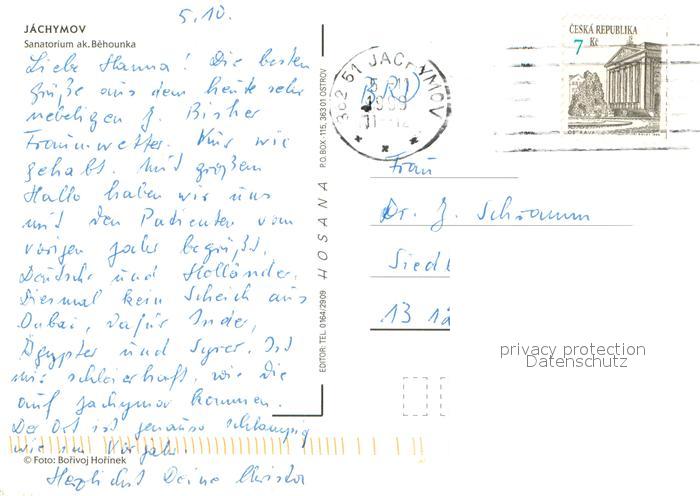 5.10.
JÁCHYMOV
Sanatorium ak. Běhounka
Liebe Hanna! Die besten
Grüße aus dem heute sehr
nebeligen J. Bisher
Traumwetter. Nur wie
gehabt. Mit großem
Hallo haben wir uns
mit den Patienten vom
vorigen Jahr begrüßt.
Deutsche und Holländer.
Diesmal kein Scheich aus
Dubai, dafür Inder,
Ägypter und Syrer. Ist
mir schleierhaft, wie die
auf Jachymov kommen.
Der Ort ist genauso schlampig
wie im Vorjahr.
Herzlichst Deine Christa
© Foto: Bořivoj Hořínek
EDITOR: TEL. 0164/2909 HOSANA P.O.BOX -115, 363 01 OSTROV
362 51 JÁCHYMOV
BRD
ČESKÁ REPUBLIKA
7 Kč
Frau
Dr. J. Schramm
Siedl
13 1
privacy protection
Datenschutz